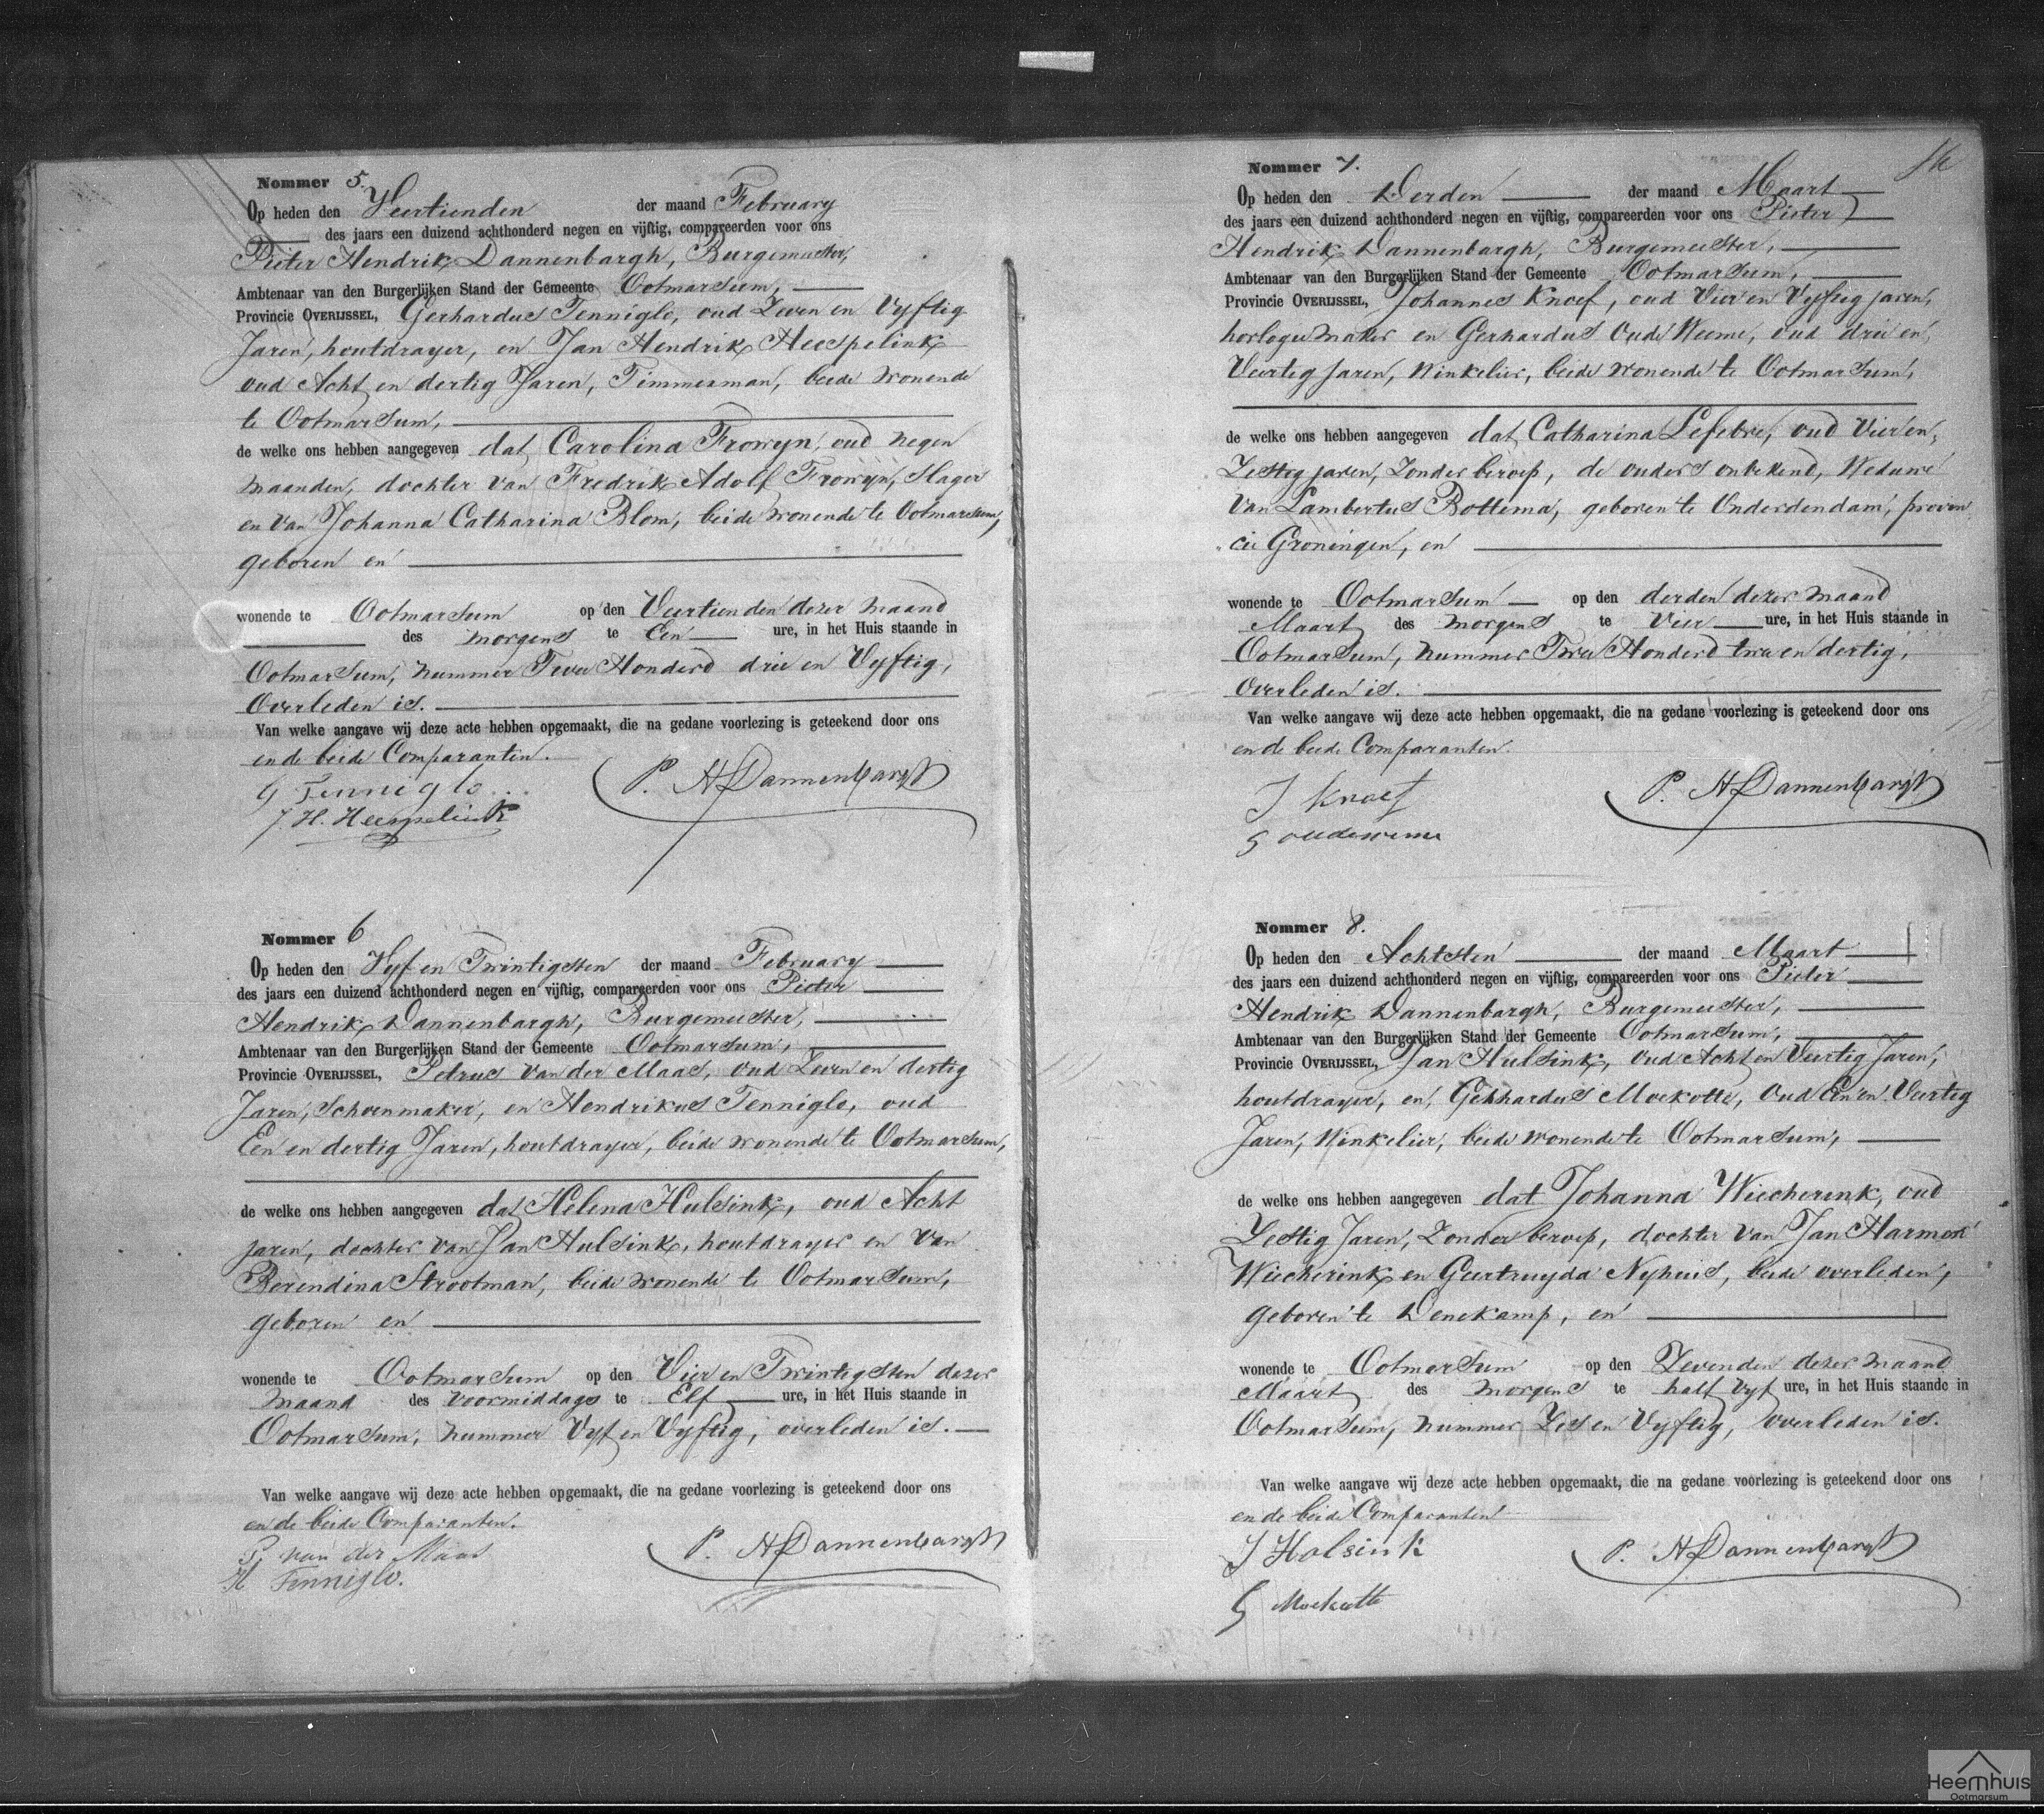 Nommer 5.
Op heden den Veertienden der maand February
des jaars een duizend achthonderd negen en vijftig, compareerden voor ons
Pieter Hendrik Dannenbargh, Burgemeester,
Ambtenaar van den Burgerlijken Stand der Gemeente Ootmarsum,
Provincie OVERIJSSEL, Gerhardus Tenniglo, oud Zeven en Vyftig
Jaren, houtdrayer, en Jan Hendrik Heespelink
oud Acht en dertig Jaren, Timmerman, beide wonende
te Ootmarsum,
de welke ons hebben aangegeven dat Carolina Frowyn, oud negen
maanden, dochter van Fredrik Adolf Frowyn, Slager
en van Johanna Catharina Blom, beide wonende te Ootmarsum,
geboren en
wonende te Ootmarsum op den Veertienden dezer maand
des morgens te Een ure, in het Huis staande in
Ootmarsum, nummer Twee Honderd drie en Vyftig,
Overleden is.
Van welke aangave wij deze acte hebben opgemaakt, die na gedane voorlezing is geteekend door ons
en de beide Comparanten.
G Tenniglo
J. H. Heespelink
P. H Dannenbargh
Nommer 6
Op heden den Vyf en Twintigsten der maand February
des jaars een duizend achthonderd negen en vijftig, compareerden voor ons Pieter
Hendrik Dannenbargh, Burgemeester,
Ambtenaar van den Burgerlijken Stand der Gemeente Ootmarsum,
Provincie OVERIJSSEL, Petrus van der Maas, oud Zeven en dertig
Jaren, Schoenmaker, en Hendrikus Tenniglo, oud
Een en dertig Jaren, houtdrayer, beide wonende te Ootmarsum,
de welke ons hebben aangegeven dat Helena Hulsink, oud Acht
jaren, dochter van Jan Hulsink, houtdrayer en van
Berendina Strootman, beide wonende te Ootmarsum,
geboren en
wonende te Ootmarsum op den Vier en Twintigsten dezer
maand des voormiddags te Elf ure, in het Huis staande in
Ootmarsum, nummer Vyf en Vyftig, overleden is.
Van welke aangave wij deze acte hebben opgemaakt, die na gedane voorlezing is geteekend door ons
en de beide Comparanten.
P. van der Maas
H Tenniglo.
P. H Dannenbargh
Nommer 7.
Op heden den Derden der maand Maart
des jaars een duizend achthonderd negen en vijftig, compareerden voor ons Pieter
Hendrik Dannenbargh, Burgemeester,
Ambtenaar van den Burgerlijken Stand der Gemeente Ootmarsum,
Provincie OVERIJSSEL, Johannes Knoef, oud Vier en Vyftig jaren,
horlogiemaker en Gerhardus Oude Weeme, oud drie en
Veertig jaren, Winkelier, beide wonende te Ootmarsum,
de welke ons hebben aangegeven dat Catharina Lefebre, oud Vier en
Zestig jaren, Zonder beroep, de ouders onbekend, Weduwe
van Lambertus Bottema, geboren te Onderdendam, provin
cie Groningen, en
wonende te Ootmarsum op den derden dezer maand
Maart des morgens te Vier ure, in het Huis staande in
Ootmarsum, nummer Twee Honderd twee en dertig,
Overleden is.
Van welke aangave wij deze acte hebben opgemaakt, die na gedane voorlezing is geteekend door ons
en de beide Comparanten.
J Knoef
G oudeweme
P. H Dannenbargh
Nommer 8.
Op heden den Achtsten der maand Maart
des jaars een duizend achthonderd negen en vijftig, compareerden voor ons Pieter
Hendrik Dannenbargh, Burgemeester,
Ambtenaar van den Burgerlijken Stand der Gemeente Ootmarsum,
Provincie OVERIJSSEL, Jan Hulsink, oud Acht en Veertig Jaren,
houtdrayer, en Gerhardus Moekotte, Oud Een en Veertig
Jaren, Winkelier, beide wonende te Ootmarsum,
de welke ons hebben aangegeven dat Johanna Wiecherink, oud
Zestig Jaren, Zonder beroep, dochter van Jan Harmen
Wiecherink en Geertruyda Nyhuis, beide overleden,
geboren te Denekamp, en
wonende te Ootmarsum op den Zevenden dezer maand
Maart des morgens te half Vyf ure, in het Huis staande in
Ootmarsum, nummer Zes en Vyftig, Overleden is.
Van welke aangave wij deze acte hebben opgemaakt, die na gedane voorlezing is geteekend door ons
en de beide Comparanten
J Holsink
G Moekotte
P. H Dannenbargh
Heemhuis
Ootmarsum